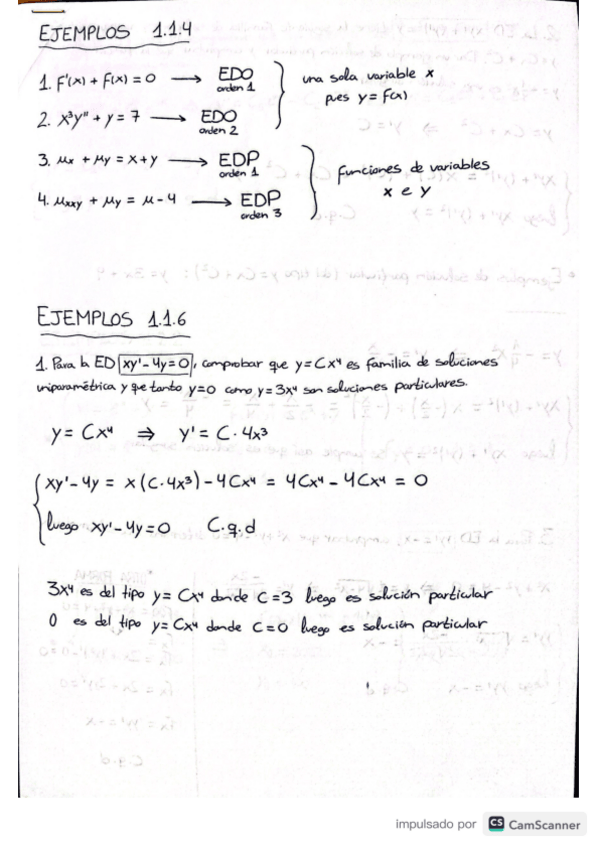 EJEMPLOS 1.1.4
1. f'(x) + f(x) = 0 → EDO orden 1
una sola variable x
pues y = f(x)
2. x³y" + y = 7 → EDO orden 2
3. μx + μy = x + y → EDP orden 1
funciones de variables
x e y
4. μxxy + μy = μ - 4 → EDP orden 3
EJEMPLOS 1.1.6
1. Para la ED xy' - 4y = 0, comprobar que y = Cx⁴ es familia de soluciones
uniparamétrica y que tanto y=0 como y=3x⁴ son soluciones particulares.
y = Cx⁴ ⇒ y' = C·4x³
xy' - 4y = x(C·4x³) - 4Cx⁴ = 4Cx⁴ - 4Cx⁴ = 0
luego xy' - 4y = 0 C.q.d
3x⁴ es del tipo y = Cx⁴ donde C=3 luego es solución particular
0 es del tipo y = Cx⁴ donde C=0 luego es solución particular
impulsado por CS CamScanner